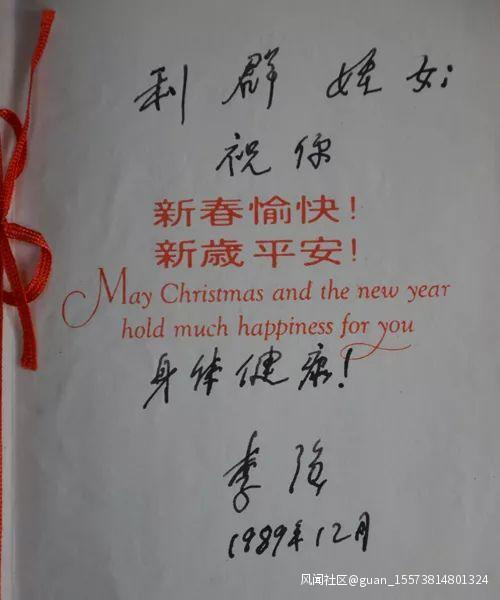 利群侄女:
祝你
新春愉快!
新歳平安!
May Christmas and the new year
hold much happiness for you
身体健康!
李强
1989年12月
风闻社区@guan_15573814801324